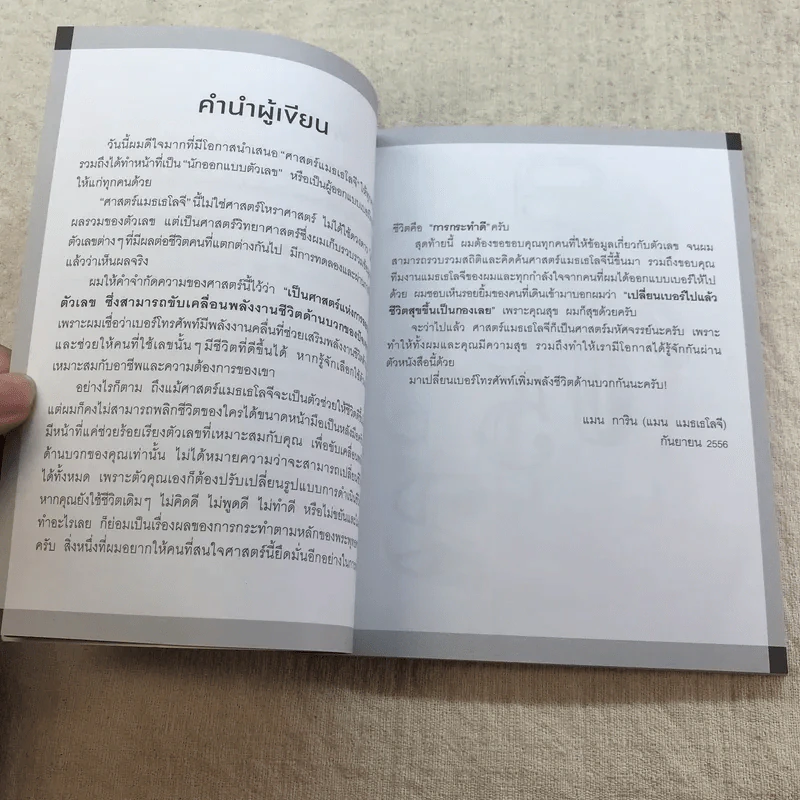 คำนำผู้เขียน
วันนี้ผมดีใจมากที่มีโอกาสนำเสนอ "ศาสตร์แมธเธโลจี" ให้
รวมถึงได้ทำหน้าที่เป็น "นักออกแบบตัวเลข" หรือเป็นผู้ออกแบบ
ให้แก่ทุกคนด้วย
"ศาสตร์แมธเธโลจี" นี้ไม่ใช่ศาสตร์โหราศาสตร์ ไม่ได้ใช้
ผลรวมของตัวเลข แต่เป็นศาสตร์วิทยาศาสตร์ซึ่งผมเก็บรวบรวม
ตัวเลขต่างๆ ที่มีผลต่อชีวิตคนที่แตกต่างกันไป มีการทดลองและ
แล้วว่าเห็นผลจริง
ผมให้คำจำกัดความของศาสตร์นี้ไว้ว่า "เป็นศาสตร์แห่งการ
ตัวเลข ซึ่งสามารถขับเคลื่อนพลังงานชีวิตด้านบวกของ
เพราะผมเชื่อว่าเบอร์โทรศัพท์มีพลังงานคลื่นที่ช่วยเสริมพลังงานชีวิต
และช่วยให้คนที่ใช้เลขนั้นๆ มีชีวิตที่ดีขึ้นได้ หากรู้จักเลือกใช้
เหมาะสมกับอาชีพและความต้องการของเขา
อย่างไรก็ตาม ถึงแม้ศาสตร์แมธเธโลจีจะเป็นตัวช่วยให้ชีวิต
แต่ผมก็คงไม่สามารถพลิกชีวิตของใครได้ขนาดหน้ามือเป็นหลังมือ
มีหน้าที่แค่ช่วยร้อยเรียงตัวเลขที่เหมาะสมกับคุณ เพื่อขับเคลื่อน
ด้านบวกของคุณเท่านั้น ไม่ได้หมายความว่าจะสามารถเปลี่ยน
ได้ทั้งหมด เพราะตัวคุณเองก็ต้องปรับเปลี่ยนรูปแบบการดำเนิน
หากคุณยังใช้ชีวิตเดิมๆ ไม่คิดดี ไม่พูดดี ไม่ทำดี หรือไม่ขยันและ
ทำอะไรเลย ก็ย่อมเป็นเรื่องผลของการกระทำตามหลักของพระพุทธ
ครับ สิ่งหนึ่งที่ผมอยากให้คนที่สนใจศาสตร์นี้ยึดมั่นอีกอย่างในการ
ชีวิตคือ "การกระทำดี" ครับ
สุดท้ายนี้ ผมต้องขอขอบคุณทุกคนที่ให้ข้อมูลเกี่ยวกับตัวเลข จนผม
สามารถรวบรวมสถิติและคิดค้นศาสตร์แมธเธโลจีนี้ขึ้นมา รวมถึงขอบคุณ
ทีมงานแมธเธโลจีของผมและทุกกำลังใจจากคนที่ผมได้ออกแบบเบอร์ให้ไป
ด้วย ผมชอบเห็นรอยยิ้มของคนที่เดินเข้ามาบอกผมว่า "เปลี่ยนเบอร์ไปแล้ว
ชีวิตสุขขึ้นเป็นกองเลย" เพราะคุณสุข ผมก็สุขด้วยครับ
จะว่าไปแล้ว ศาสตร์แมธเธโลจีก็เป็นศาสตร์มหัศจรรย์นะครับ เพราะ
ทำให้ทั้งผมและคุณมีความสุข รวมถึงทำให้เรามีโอกาสได้รู้จักกันผ่าน
ตัวหนังสือนี้ด้วย
มาเปลี่ยนเบอร์โทรศัพท์เพิ่มพลังชีวิตด้านบวกกันนะครับ!
แมน การิน (แมน แมธเธโลจี)
กันยายน 2556